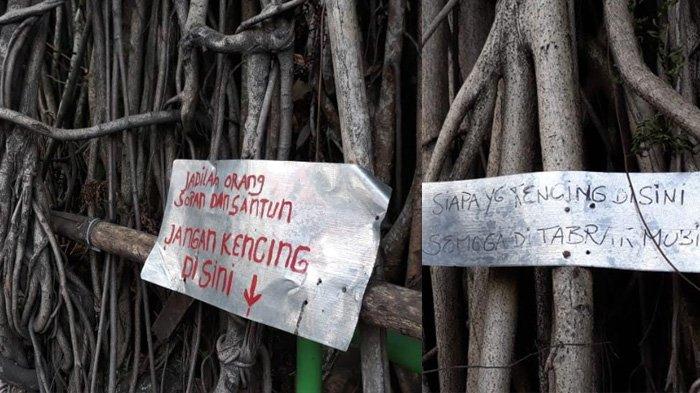 JADILAH ORANG
SOPAN DAN SANTUN
JANGAN KENCING
DISINI ↓
SIAPA YG KENCING DISINI
SEMOGA DI TABRAK MOBI